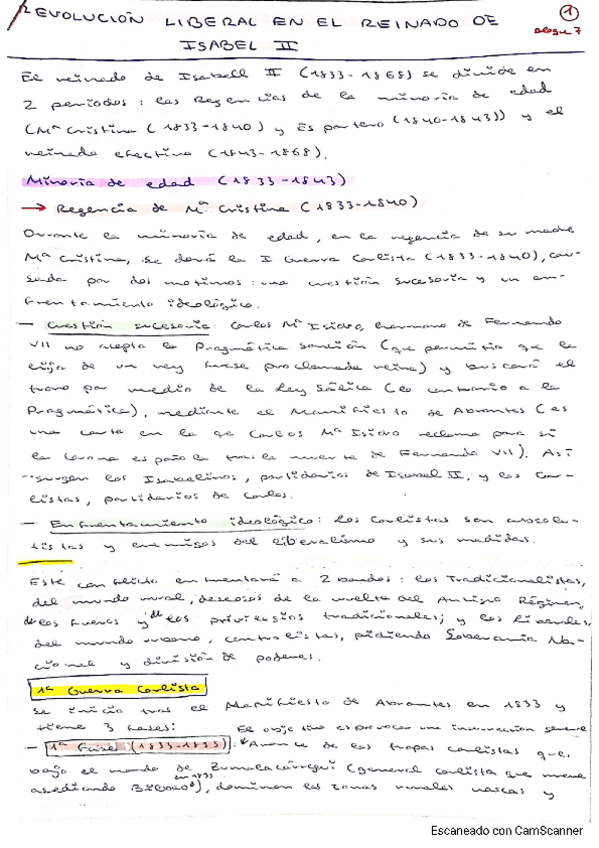 REVOLUCIÓN LIBERAL EN EL REINADO DE
ISABEL II
1
Bloque 7
El reinado de Isabell II (1833-1868) se divide en
2 periodos: las Regencias de la minoria de edad
(Mª Cristina (1833-1840) y Espartero (1840-1843)) y el
reinado efectivo (1843-1868).
Minoria de edad (1833-1843)
→ Regencia de Mª Cristina (1833-1840)
Durante la minoria de edad, en la regencia de su madre
Mª Cristina, se dará la I Guerra Carlista (1833-1840), cau-
sada por dos motivos: una cuestión sucesoria y un en-
frentamiento ideológico.
- Cuestión sucesoria: Carlos Mª Isidro, hermano de Fernando
VII no acepta la Pragmática Sanción (que permitia que la
hija de un rey fuese proclamada reina) y buscará el
trono por medio de la Ley Sálica (lo contrario a la
Pragmática), mediante el Manifiesto de Abrantes (es
una carta en la que Carlos Mª Isidro reclama para sí
la Corona española tras la muerte de Fernando VII). Así
surgen los Isabelinos, partidarios de Isabel II, y los Car-
listas, partidarios de Carlos.
- Enfrentamiento ideológico: los Carlistas son absolu-
tistas y enemigos del liberalismo y sus medidas.
Este conflicto enfrentará a 2 bandos: los Tradicionalistas,
del mundo rural, deseosos de la vuelta del Antiguo Régimen,
de los fueros y de los privilegios tradicionales; y los liberales,
del mundo urbano, centralistas, pidiendo Soberanía Na-
cional y división de poderes.
1ª Guerra Carlista
Se inicia tras el Manifiesto de Abrantes en 1833 y
tiene 3 fases: El objetivo es provocar una insurrección general
- 1ª Fase (1833-1835): Avance de las tropas carlistas que,
bajo el mando de Zumalacárregui (general carlista que muere
asediando Bilbao en 1835), dominan las zonas rurales vascas y
Escaneado con CamScanner